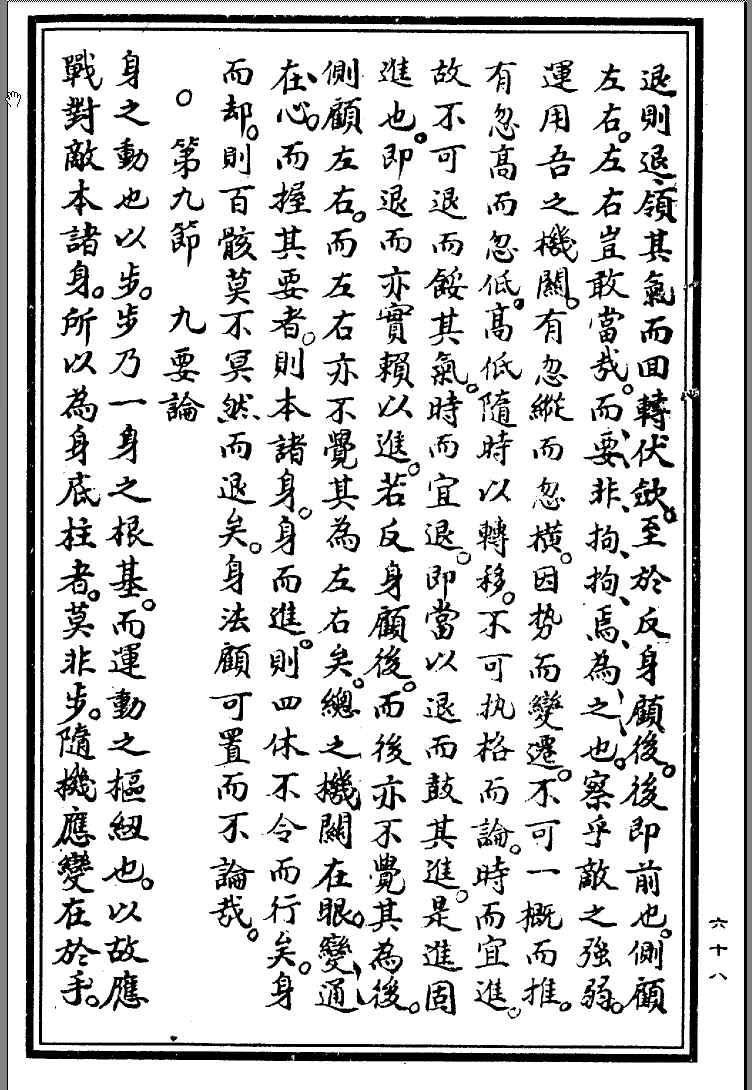 退則退。領其氣而回轉伏歛。至於反身顧後。後即前也。側顧
左右。左右豈敢當哉。而要非拘拘焉為之也。察乎敵之強弱。
運用吾之機關。有忽縱而忽橫。因势而變遷。不可一概而推。
有忽高而忽低。高低隨時以轉移。不可执格而論。時而宜進。
故不可退而餒其氣。時而宜退。即當以退而鼓其進。是進固
進也。即退而亦實賴以進。若反身顧後。而後亦不覺其為後。
側顧左右。而左右亦不覺其為左右矣。總之機關在眼。變通
在心。而握其要者。則本諸身。身而進。則四体不令而行矣。身
而却。則百骸莫不冥然而退矣。身法顧可置而不論哉。
。第九節 九要論
身之動也以步。步乃一身之根基。而運動之樞紐也。以故應
戰對敵本諸身。所以為身底柱者。莫非步。隨機應變在於手。
六十八